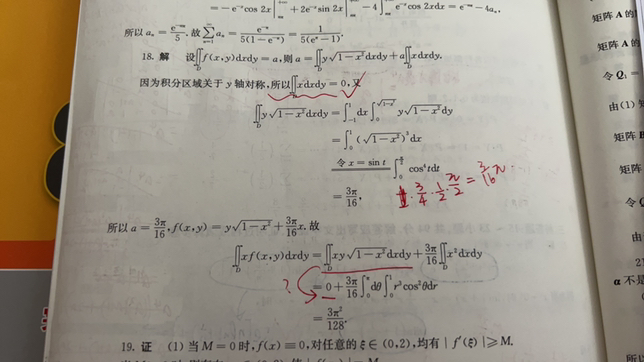 = -e⁻ˣcos 2x | + 2e⁻ˣsin 2x | - 4∫ e⁻ˣcos 2xdx = e⁻ⁿᵖ - 4aₙ,
所以 aₙ = e⁻ⁿᵖ/5. 故 ∑aₙ = e⁻ᵖ/5(1-e⁻ᵖ) = 1/5(eᵖ-1).
18. 解 设∬f(x,y)dxdy = a,则 a = ∬y√(1-x²)dxdy + a∬xdxdy.
因为积分区域关于 y 轴对称,所以∬xdxdy = 0,又
∬y√(1-x²)dxdy = ∫₋₁¹dx∫₀^√(1-x²) y√(1-x²)dy
= ∫₀¹(√(1-x²))³dx
令 x = sin t ∫₀^(π/2) cos⁴tdt
= 3π/16,
1·3/4·1/2·π/2 = 3/16π
所以 a = 3π/16, f(x,y) = y√(1-x²) + 3π/16 x,故
∬xf(x,y)dxdy = ∬xy√(1-x²)dxdy + 3π/16∬x²dxdy
? = 0 + 3π/16∫₀^π dθ∫₀¹r³cos²θdr
= 3π²/128.
19. 证 (1) 当 M = 0 时, f(x) ≡ 0,对任意的 ξ ∈ (0,2),均有 | f′(ξ) | ⩾ M.
矩阵 A 的
矩阵 A 的
令 Q₁ =
由(1)知
矩阵
令
由
α 不是